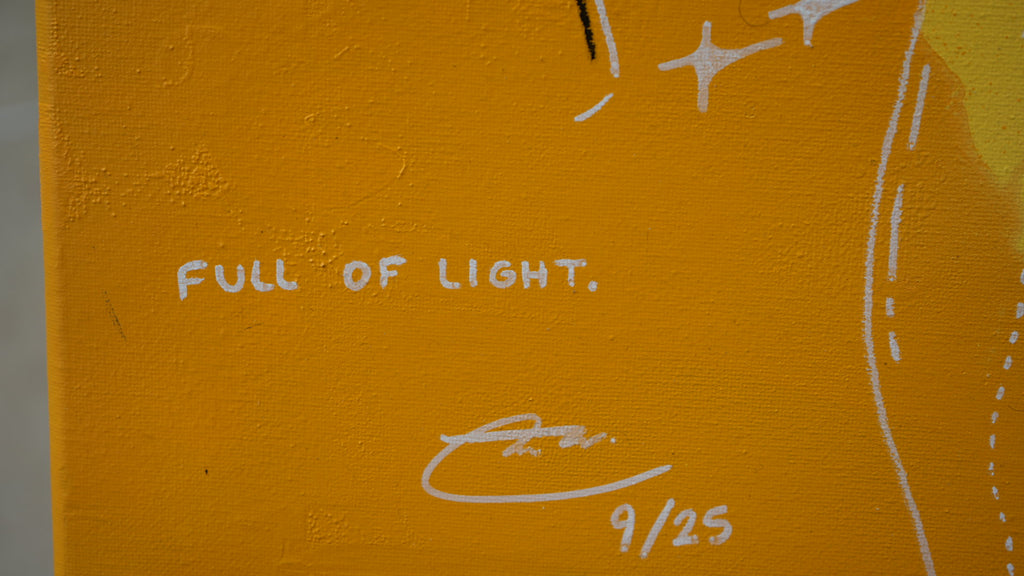 FULL OF LIGHT.
9/25